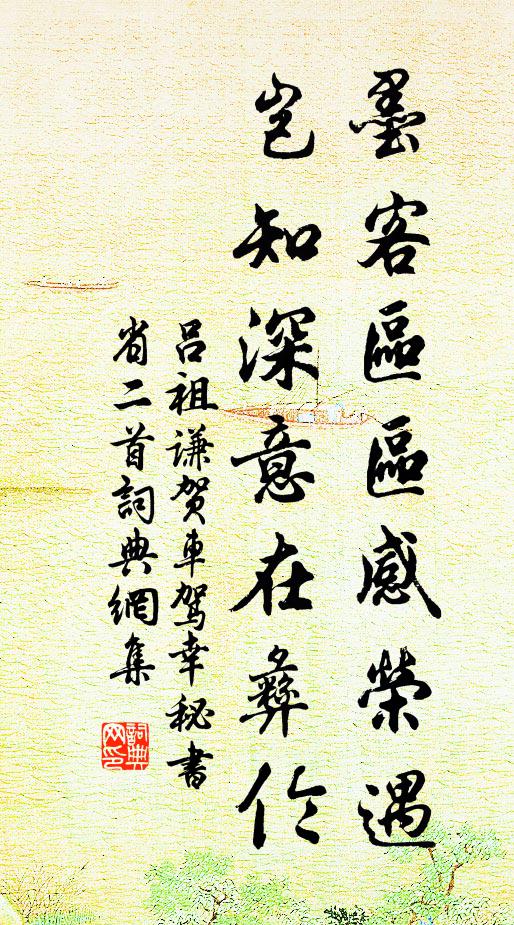 墨客區區感榮遇
豈知深意在彝伦
吕祖谦贺車駕幸秘書
省二首詞典網集
詞典
网印